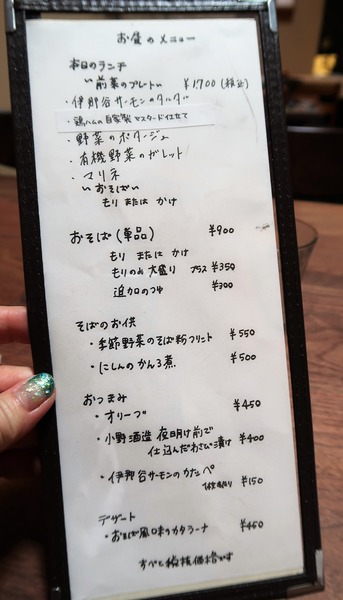 お昼のメニュー
本日のランチ
〜前菜のプレート〜 ¥1700(税込)
・伊那谷サーモンのタルタル
・鶏ハムの自家製マスタード仕立て
・野菜のポタージュ
・有機野菜のガレット
・マリネ
〜おそば〜
もり または かけ
おそば(単品) ¥900
もり または かけ
もりのみ 大盛り プラス ¥350
追加のつゆ ¥300
そばのお供
・季節野菜のそば粉フリット ¥550
・にしんのかんろ煮 ¥500
おつまみ
・オリーブ ¥450
・小野酒造 夜明け前で
仕込んだわさび漬け ¥400
・伊那谷サーモンのカナッペ
¥150
デザート
・おそば風味のカタラーナ ¥450
すべて税抜価格です